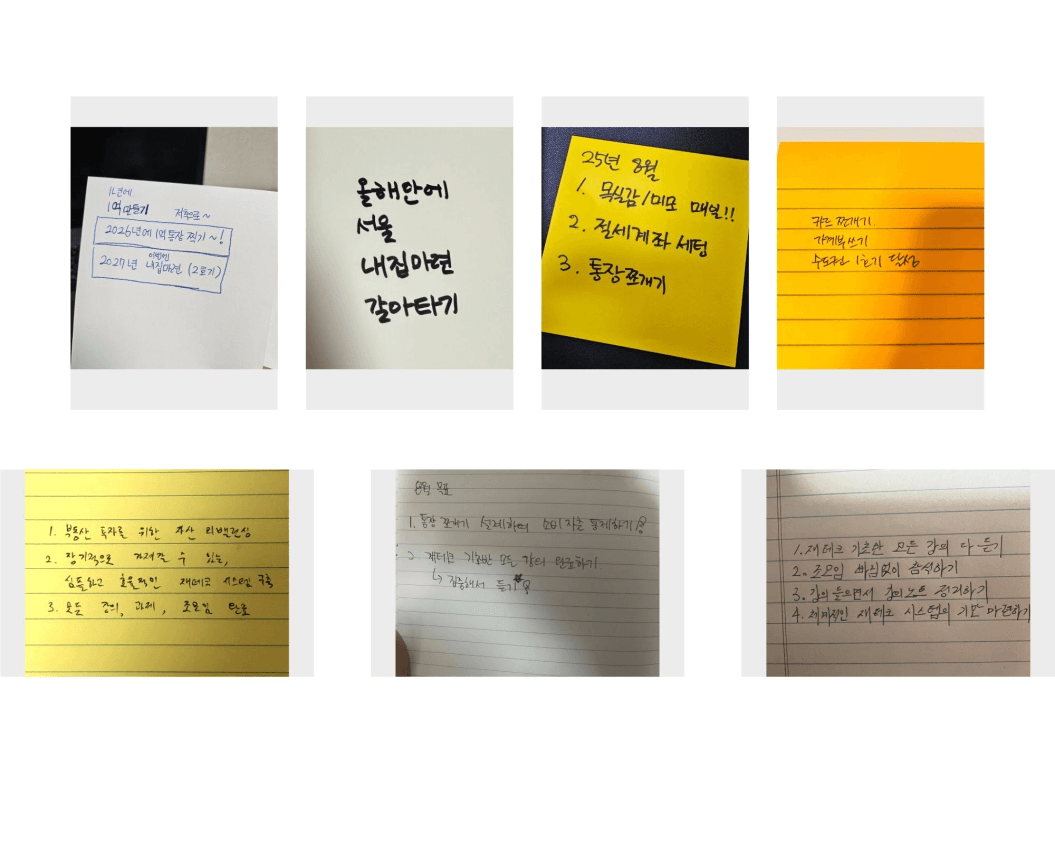 1년에
1억 만들기 저축으로~
2026년에 1억 통장 찍기~!
2027년 내집마련 (2호기)
올해안에
서울
내집마련
갈아타기
25년 8월
1. 목실감/미모 매일!!
2. 절세계좌 세팅
3. 통장쪼개기
카드 쪼개기.
가계부쓰기
수도권 1호기 달성
1. 부동산 투자를 위한 자산 리밸런싱
2. 장기적으로 가져갈 수 있는,
심플하고 효율적인 재테크 시스템 구축
3. 모든 강의, 과제, 조모임 완료
8월 목표
1. 통장 쪼개기 실제하여 소비지출 통제하기
2. 재테크 기초반 모든 강의 완료하기
↳ 집중해서 듣기
1. 재테크 기초반 모든 강의 다 듣기
2. 조모임 빠짐없이 참석하기
3. 강의 들으면서 강의노트 정리하기
4. 체계적인 재테크 시스템의 기반 마련하기